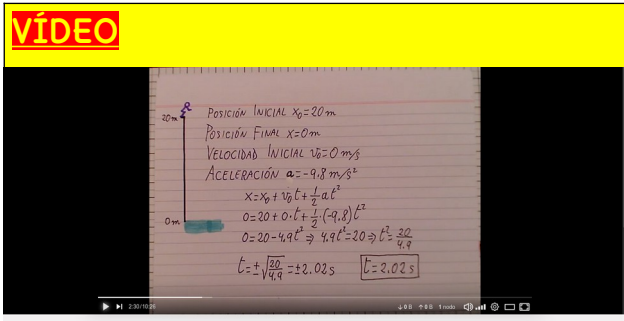 VÍDEO
20m
0m
POSICIÓN INICIAL x₀=20m
POSICIÓN FINAL x=0m
VELOCIDAD INICIAL v₀=0 m/s
ACELERACIÓN a=-9.8 m/s²
x=x₀+v₀t+½at²
0=20+0·t+½·(-9.8)t²
0=20-4.9t² ⇒ 4.9t²=20 ⇒ t²=20/4.9
t=±√(20/4.9)=±2.02s t=2.02s
2:30/10:26 ↓0B ↑0B 1 nodo